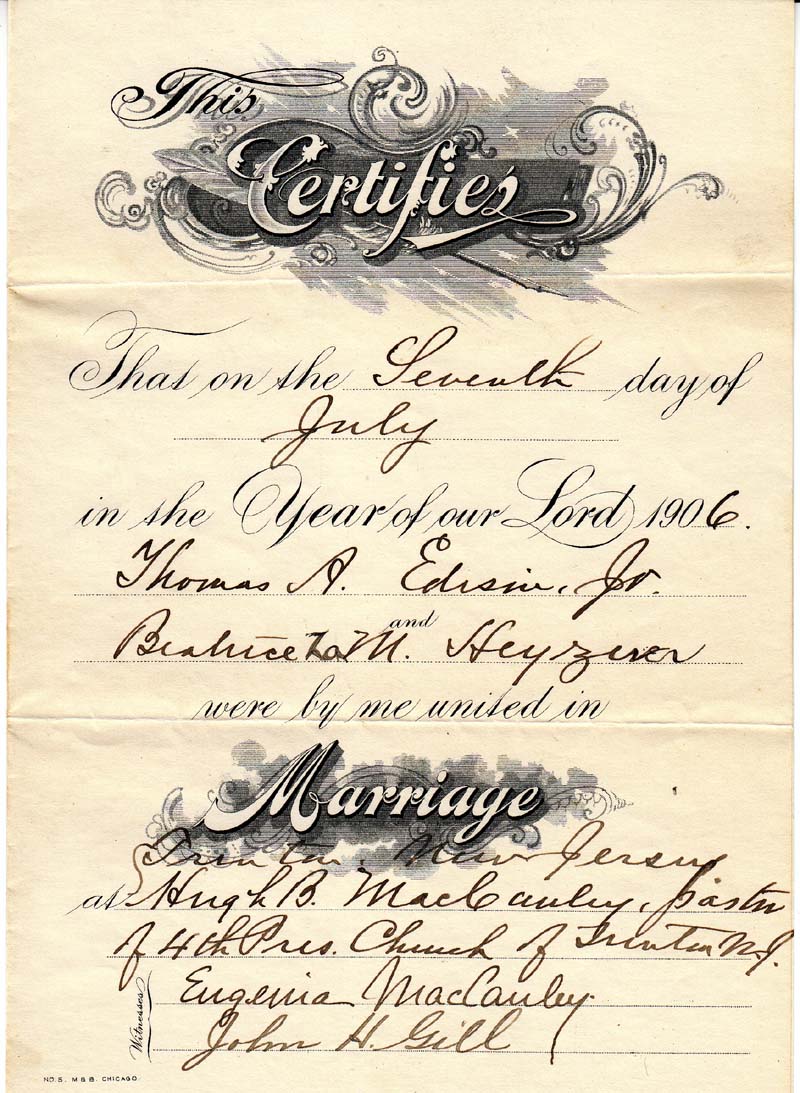 This
Certifies
That on the Seventh day of
July
in the Year of our Lord 1906.
Thomas A. Edison, Jr.
and
Beatrice La M. Heyzer
were by me united in
Marriage
Trenton, New Jersey
at Hugh B. MacCauley, pastor
of 4th Pres. Church of Trenton N.J.
Witnesses
Eugenia MacCauley.
John H. Gill
NO. 5. M & B. CHICAGO